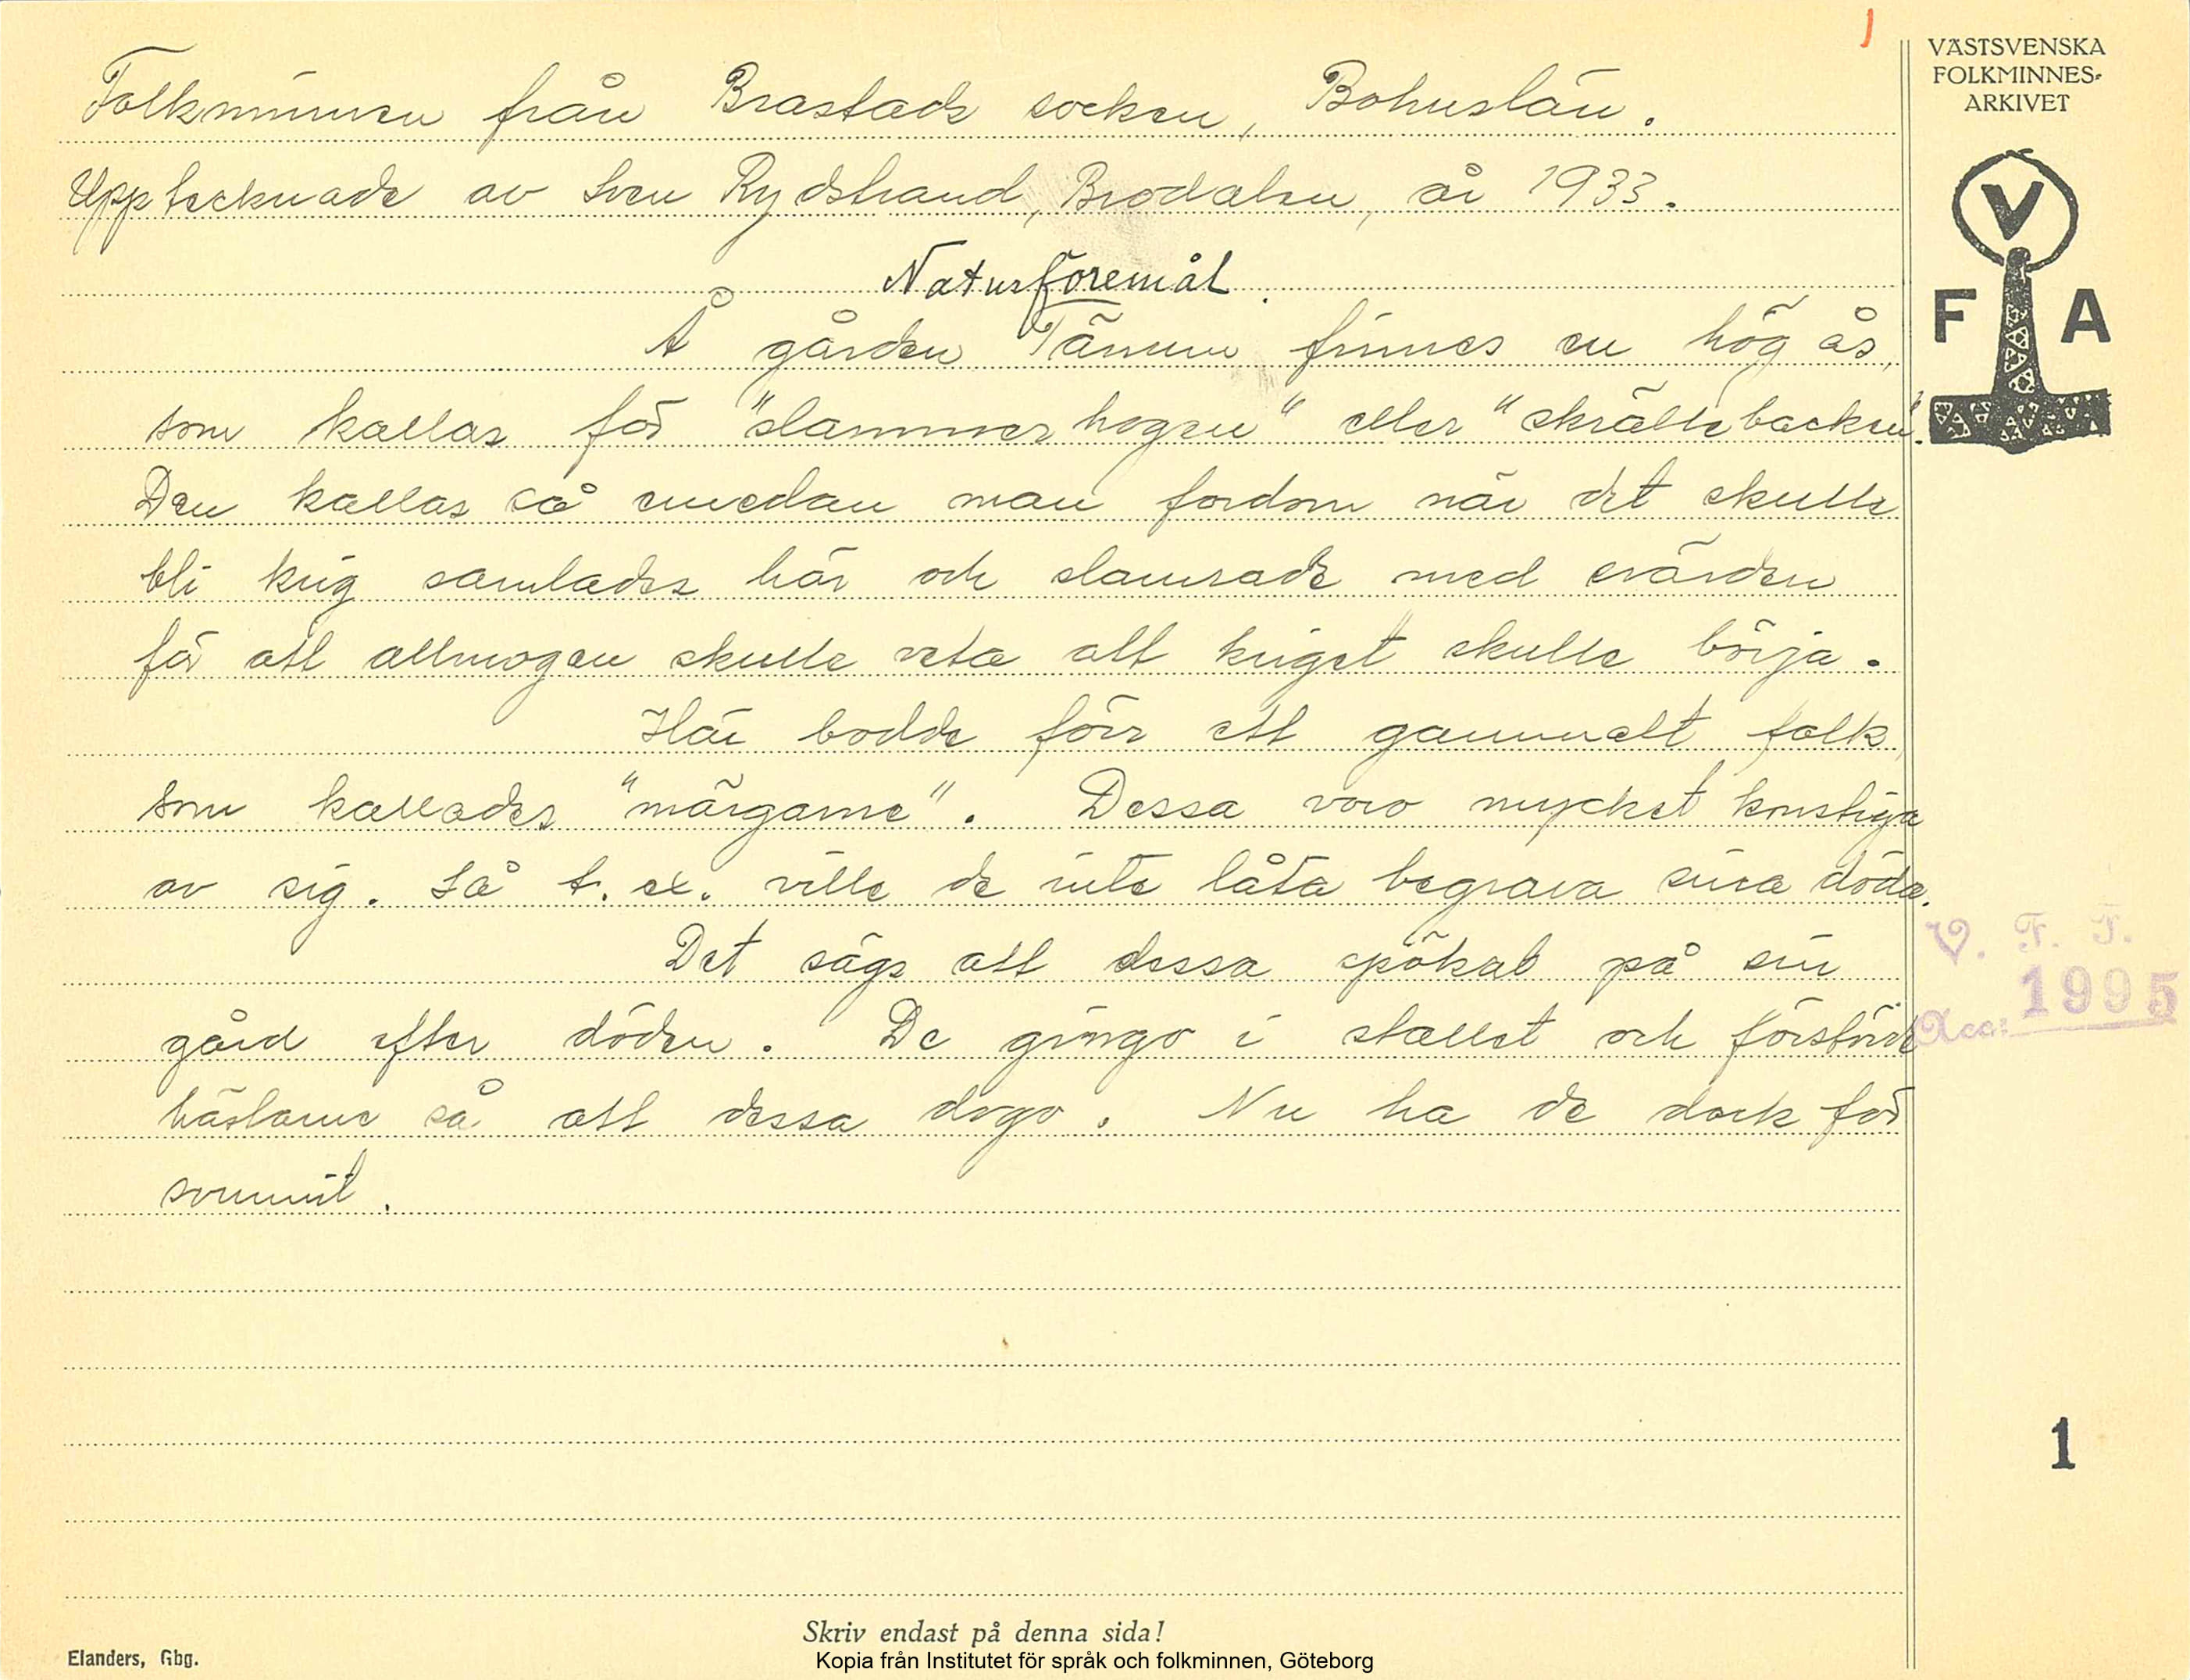 1
VÄSTSVENSKA
FOLKMINNES-
ARKIVET
V
F A
Folkminnen från Brastads socken, Bohuslän.
Upptecknade av Sven Rydstrand, Brodalen, år 1933.
Naturföremål.
Å gården Tämm finnes en hög ås,
som kallas för "slammerhogen" eller "skrällebacken".
Den kallas så emedan man fordom när det skulle
bli krig samlades här och slamrade med svärden
för att allmogen skulle veta att kriget skulle börja.
Här bodde förr ett gammalt folk,
som kallades "märgarne". Dessa voro mycket konstiga
av sig. Så t. ex. ville de inte låta begrava sina döda.
Det sägs att dessa spökat på sin
gård efter döden. De gingo i stallet och förstörde
hästarne så att dessa dogo. Nu ha de dock för
svunnit.
V. F. T.
Acc: 1995
1
Skriv endast på denna sida!
Elanders, Gbg.
Kopia från Institutet för språk och folkminnen, Göteborg